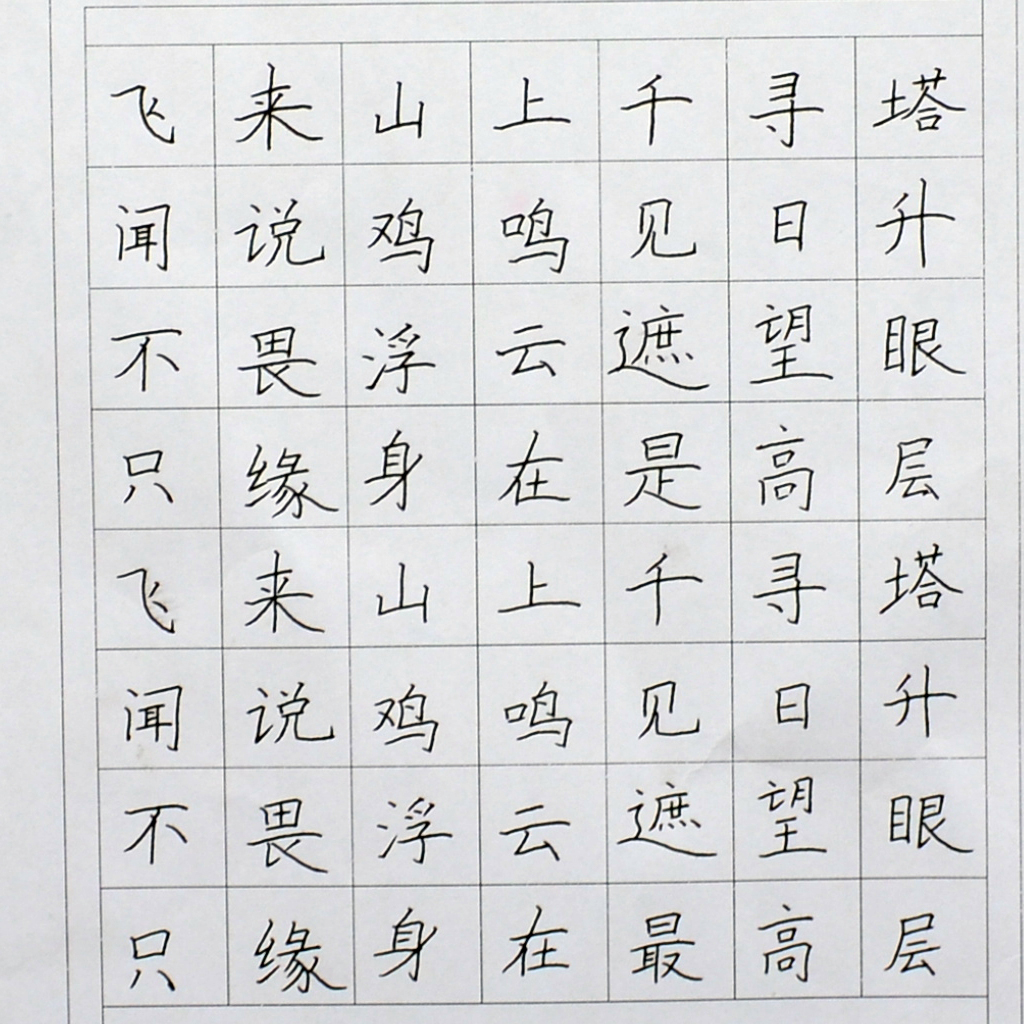 飞来山上千寻塔
闻说鸡鸣见日升
不畏浮云遮望眼
只缘身在是高层
飞来山上千寻塔
闻说鸡鸣见日升
不畏浮云遮望眼
只缘身在最高层